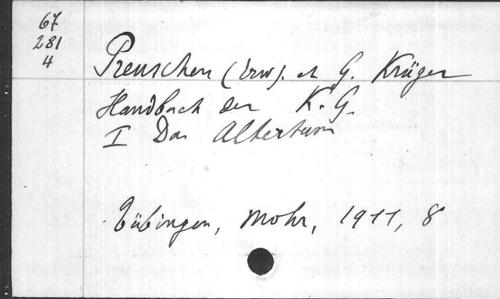 67
281
4
Preuschen (Erw). et G. Krüger
Handbuch der K. G.
I Das Altertum
Tübingen, Mohr, 1911, 8